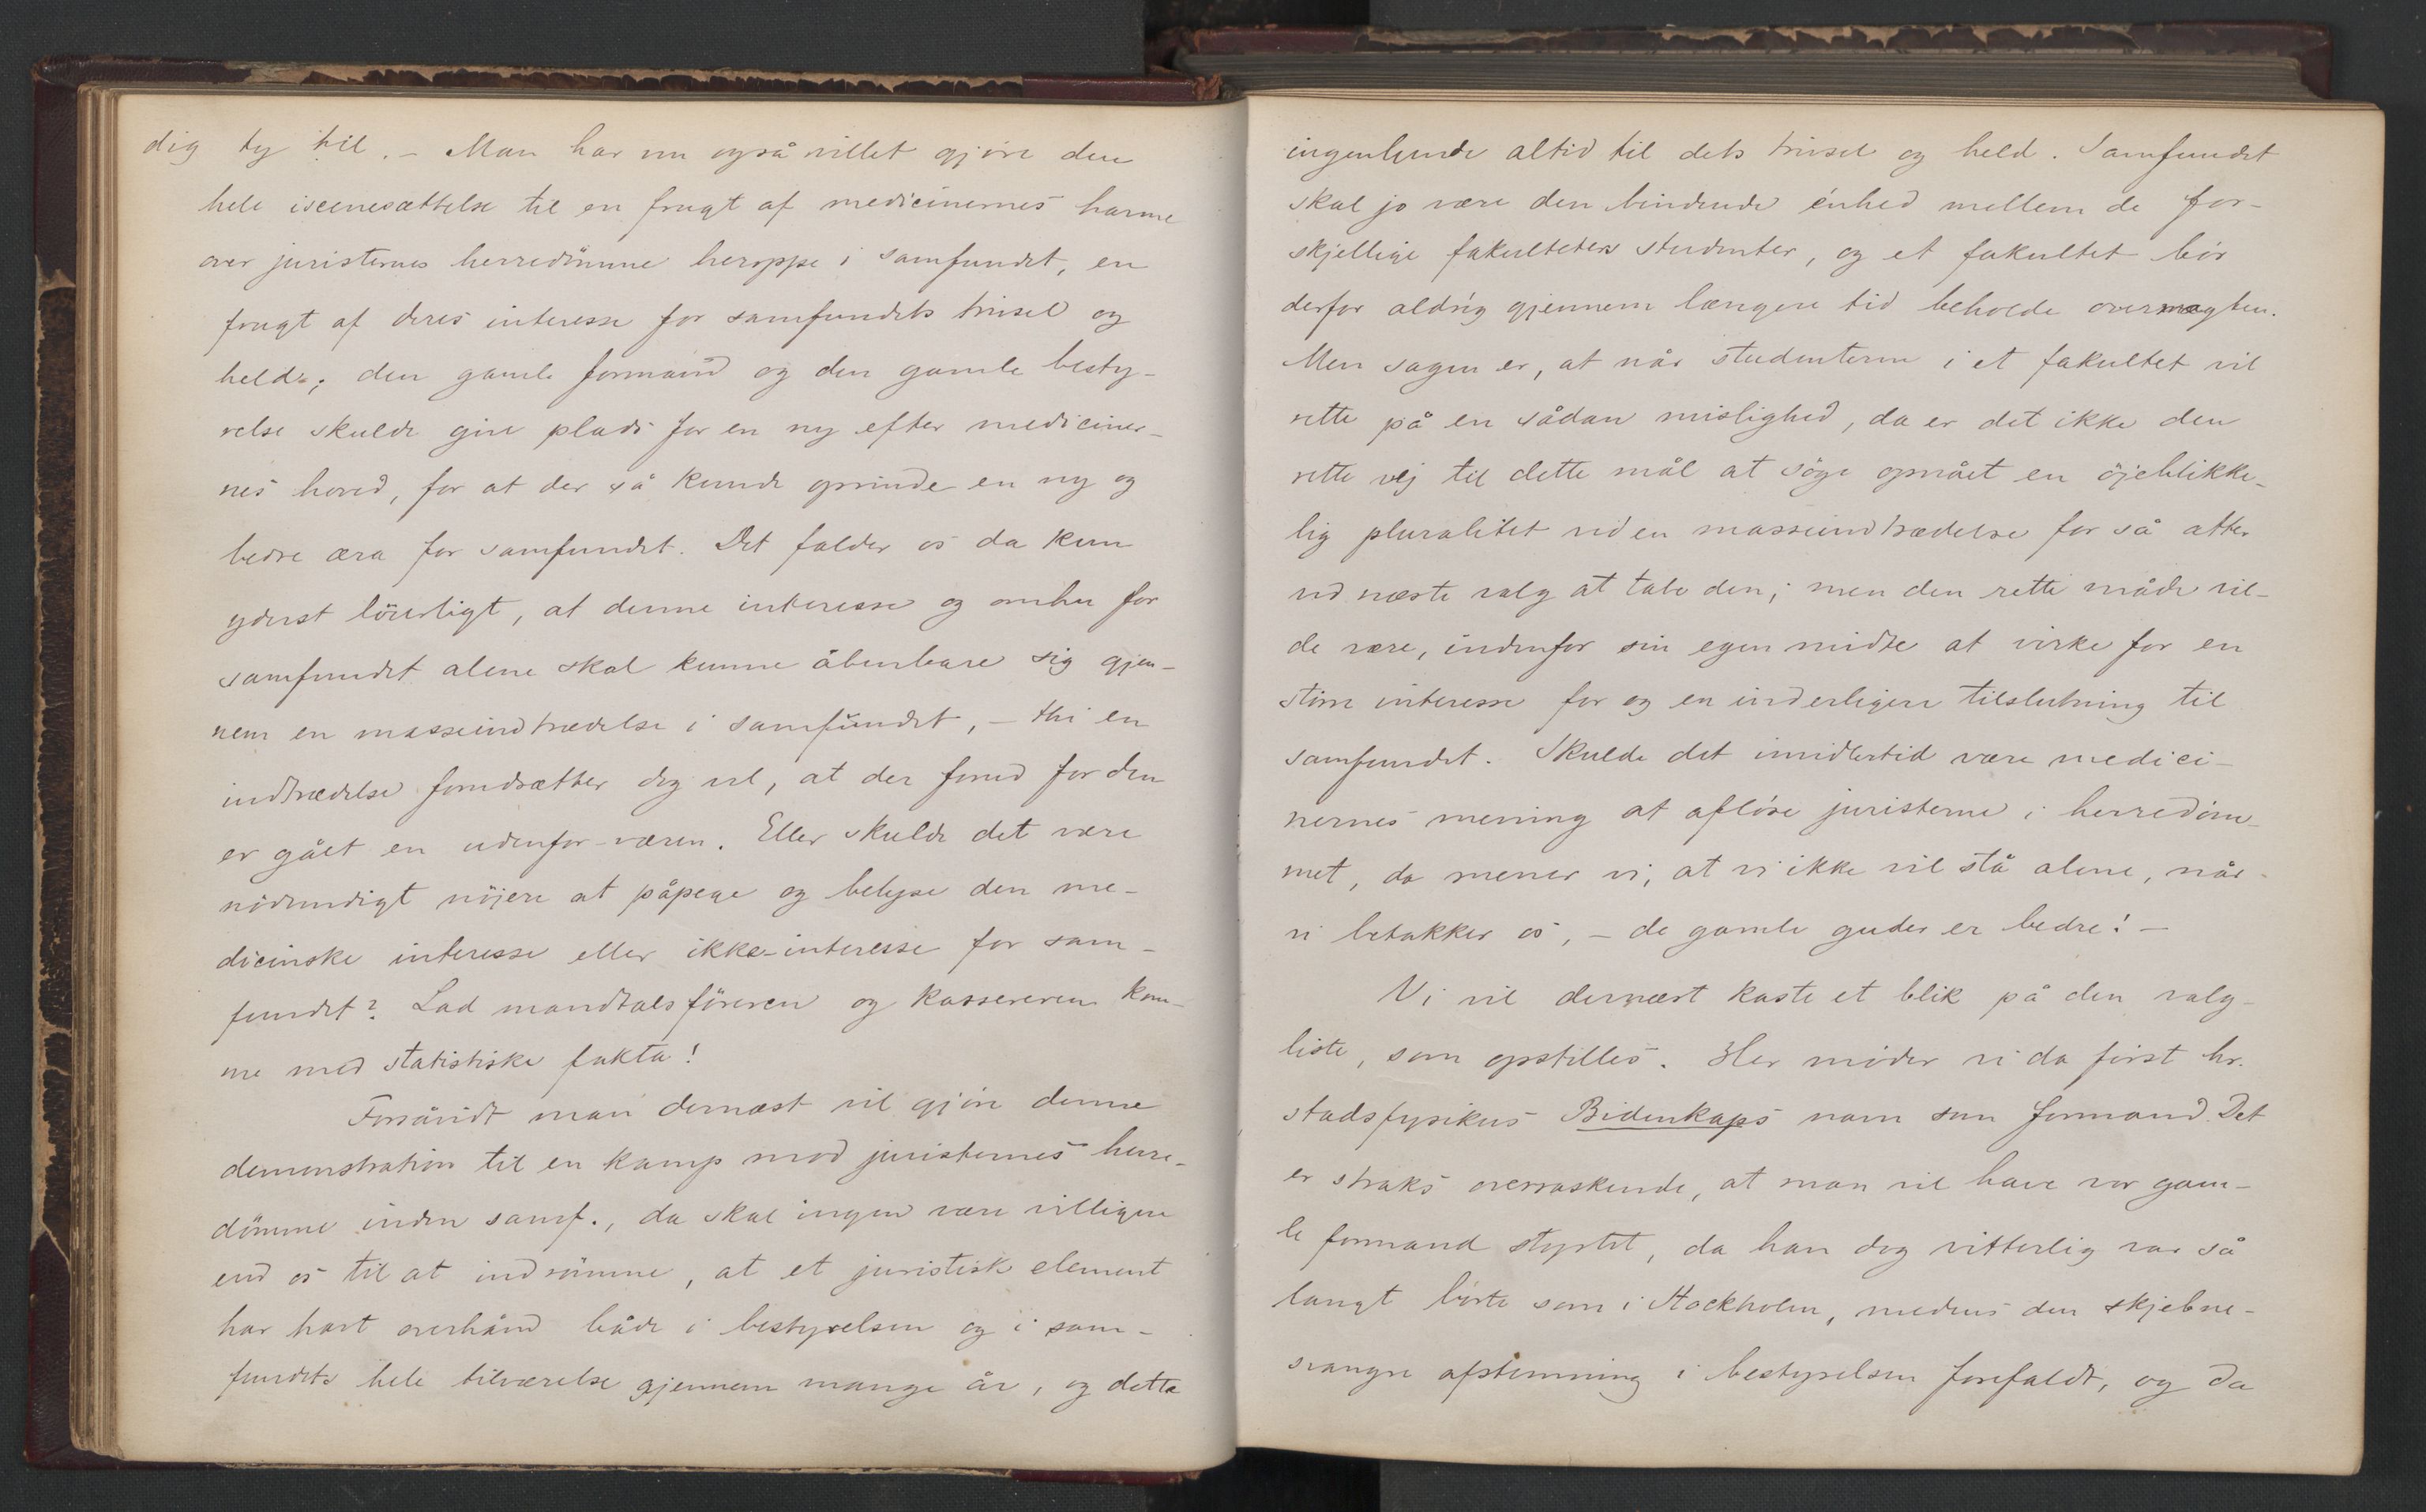 dig ty til. – Man har nu også villet gjöre den
hele iscenesættelse til en frugt af medicinernes harme
over juristernes herredömme heroppe i samfundet, en
frugt af deres interesse for samfundets trivsel og
held; den gamle formand og den gamle besty-
relse skulde give plads for en ny efter mediciner-
nes hoved, for at der så kunde oprinde en ny og
bedre æra for samfundet. Det falder os da kun
yderst löierligt, at denne interesse og omhu for
samfundet alene skal kunne åbenbare sig gjen-
nem en masseindtrædelse i samfundet, – thi en
indtrædelse forudsætter dog vel, at der forud for den
er gået en udenfor-væren. Eller skulde det være
nödvendigt nöjere at påpege og belyse den me-
dicinske interesse eller ikke-interesse for sam-
fundet? Lad mandtalsföreren og kassereren kom-
me med statistiske fakta!
Forsåvidt man dernæst vil gjöre denne
demonstration til en kamp mod juristernes herre-
dömme inden samf., da skal ingen være villigere
end os til at indrömme, at et juristisk element
har havt overhånd både i bestyrelsen og i sam-
fundets hele tilværelse gjennem mange år, og dette
ingenlunde altid til dets trivsel og held. Samfundet
skal jo være den bindende énhed mellem de for-
skjellige fakulteters studenter, og et fakultet bör
derfor aldrig gjennem længere tid beholde overmagten.
Men sagen er, at når studenterne i et fakultet vil
rette på en sådan mislighed, da er det ikke den
rette vej til dette mål at söge opnået en öjeblikke-
lig pluralitet ved en masseindtrædelse for så atter
ved næste valg at tabe den; men den rette måde vil-
de være, indenfor sin egen midte at virke for en
större interesse for og en inderligere tilslutning til
samfundet. Skulde det imidlertid være medici-
nernes mening at aflöse juristerne i herredöm-
met, da mener vi, at vi ikke vil stå alene, når
vi betakker os, – de gamle guder er bedre! –
Vi vil dernæst kaste et blik på den valg-
liste, som opstilles. Her möder vi da först hr.
stadsfysikus Bidenkaps navn som formand. Det
er straks overraskende, at man vil have vor gam-
le formand styrtet, da han dog vitterlig var så
langt borte som i Stockholm, medens den skjebne-
svangre afstemning i bestyrelsen forefaldt, og da